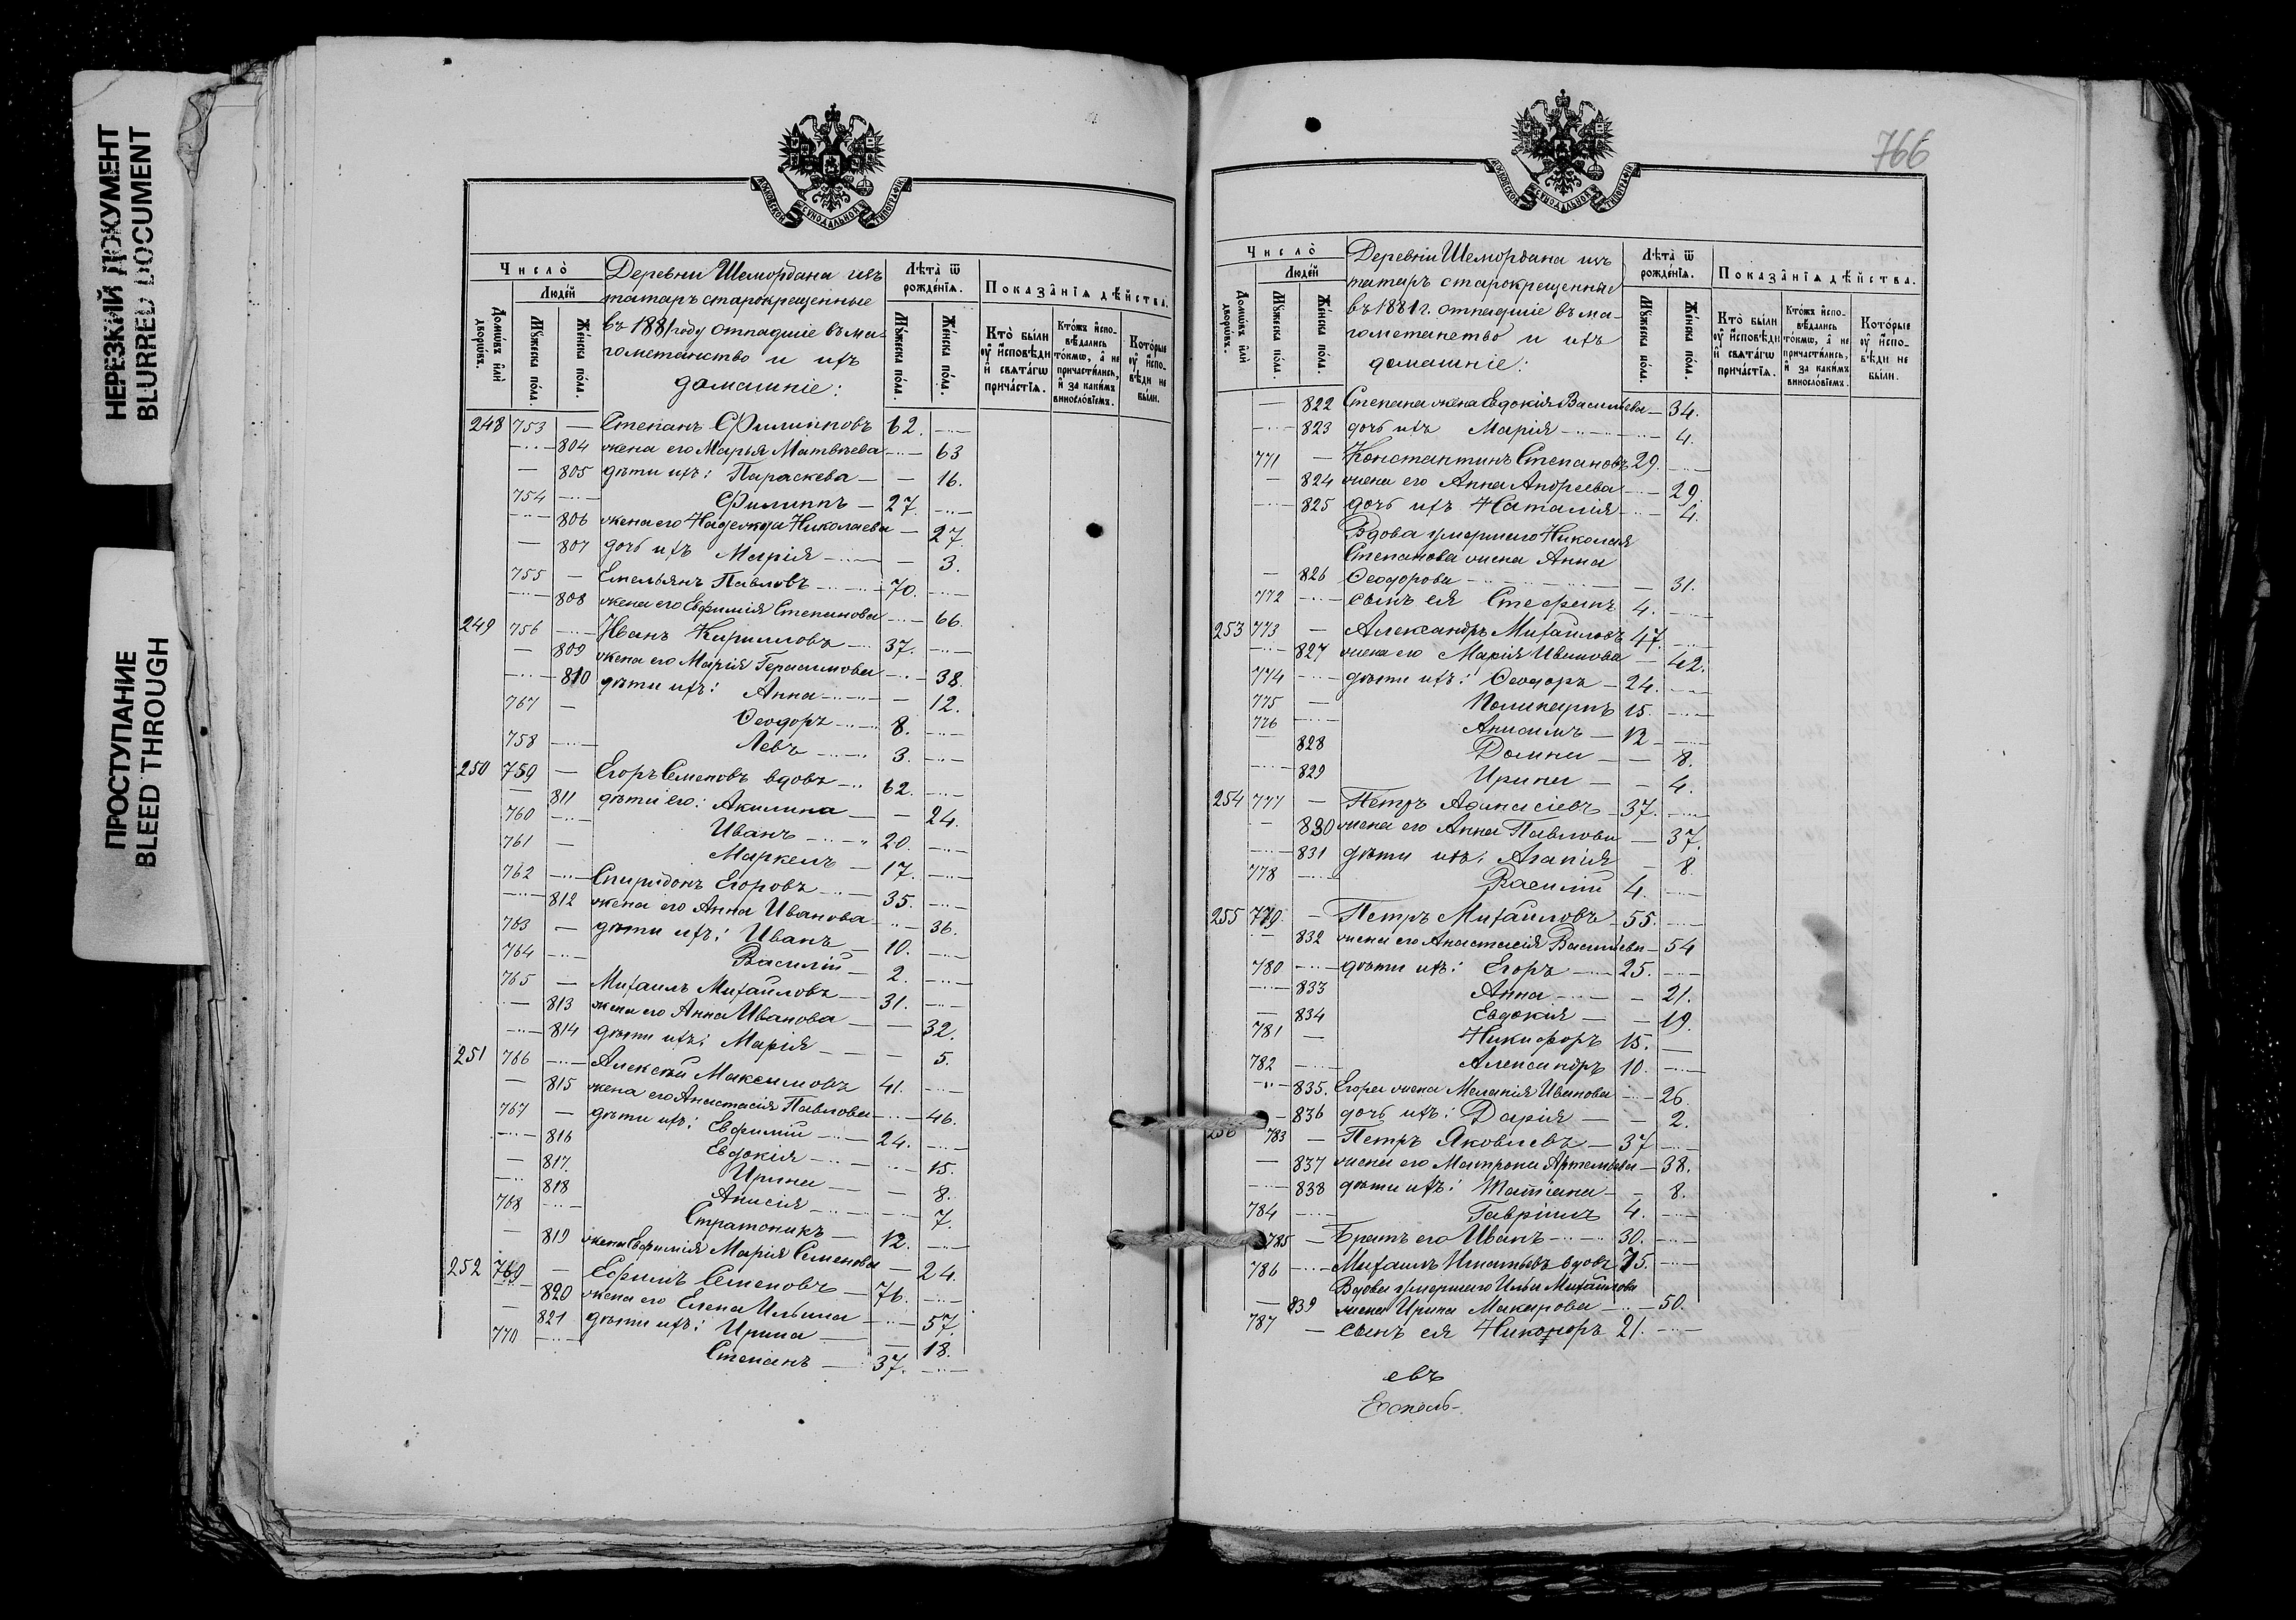 НЕРЕЗКИЙ ДОКУМЕНТ
BLURRED DOCUMENT
ПРОСТУПАНИЕ
BLEED THROUGH
МОСКОВСКОЙ СѴНОДАЛЬНОЙ ТИПОГРАФІИ
Число̀
Людей
Домѡвъ и҆лѝ дворѡвъ.
Мꙋжеска пола.
Женска пола.
Деревни Шемордана изъ
татаръ старокрещенные
въ 1881 году отпадшіе въ ма-
гометанство и ихъ
домашніе:
Лѣта̀ ѿ рожденїѧ.
Мꙋжеска пола.
Женска пола.
Показанїѧ дѣйства.
Кто̀ были оу҆ и҆сповѣди и҆ свѧтагѡ причастїѧ.
Ктожъ и҆спо-вѣдались токмѡ, а҆ не причастились, и҆ за какимъ винословїемъ.
Которые оу҆ и҆спо-вѣди не были.
248 753 — Степанъ Филипповъ 62. —
— 804 жена его Марья Матвѣева — 63
— 805 дѣти ихъ: Параскева — — 16.
754 — Филиппъ — 27. —
— 806 жена его Надежда Николаева — 27.
— 807 дочь ихъ Марія — — 3.
755 — Емельянъ Павловъ — 70. —
— 808 жена его Евфимія Степанова — 66.
249 756 — Иванъ Кирилловъ — 37. —
— 809 жена его Марія Герасимова — 38.
— 810 дѣти ихъ: Анна — — 12.
767 — Ѳеодоръ — 8. —
758 — Левъ — 3. —
250 759 — Егоръ Семеновъ вдовъ — 62. —
— 811 дѣти его: Акилина — — 24.
760 — Иванъ — 20. —
761 — Маркелъ — 17. —
762 — Спиридонъ Егоровъ — 35. —
— 812 жена его Анна Иванова — 36.
763 — дѣти ихъ: Иванъ — 10. —
764 — Василій — 2. —
765 — Михаилъ Михайловъ — 31. —
— 813 жена его Анна Иванова — — 32.
— 814 дѣти ихъ: Марія — — 5.
251 766 — Алексѣй Максимовъ 41. —
— 815 жена его Анастасія Павлова — 46.
767 — дѣти ихъ: Евфимій — 24. —
— 816 Евдокія — — 15.
— 817. Ирина — — 8.
— 818 Анисія — — 7.
768 — Стратоникъ — 12. —
— 819 жена Евфимія Марія Семенова — 24.
252 769 — Ефимъ Семеновъ — 76. —
— 820 жена его Елена Ильина — 57.
— 821 дѣти ихъ: Ирина — — 18.
770 — Степанъ — 37. —
766
МОСКОВСКОЙ СѴНОДАЛЬНОЙ ТИПОГРАФІИ
Число̀
Людей
Домѡвъ и҆лѝ дворѡвъ.
Мꙋжеска пола.
Женска пола.
Деревни Шемордана изъ
татаръ старокрещенные
въ 1881 г. отпадшіе въ ма-
гометанство и ихъ
домашніе:
Лѣта̀ ѿ рожденїѧ.
Мꙋжеска пола.
Женска пола.
Показанїѧ дѣйства.
Кто̀ были оу҆ и҆сповѣди и҆ свѧтагѡ причастїѧ.
Ктожъ и҆спо-вѣдались токмѡ, а҆ не причастились, и҆ за какимъ винословїемъ.
Которые оу҆ и҆спо-вѣди не были.
— 822 Степана жена Евдокія Васильева — 34.
— 823 дочь ихъ Марія — — 4.
771 — Константинъ Степановъ 29. —
— 824 жена его Анна Андреева — 29.
— 825 дочь ихъ Наталія — — 4.
Вдова умершаго Николая
Степанова жена Анна
— 826 Ѳеодорова — — 31.
772 — сынъ ея Стефанъ 4. —
253 773 — Александръ Михайловъ 47. —
— 827 жена его Марія Иванова — 42.
774 — дѣти ихъ: Ѳеодоръ — 24. —
775 — Поликарпъ 15. —
776 — Анисимъ — 12 —
— 828 Домна — — 8.
— 829 Ирина — — 4.
254 777 — Петръ Аѳанасіевъ — 37. —
— 830 жена его Анна Павлова — 37.
— 831 дѣти ихъ: Агапія — 8.
778 — Василій 4. —
255 779. — Петръ Михайловъ 55. —
— 832 жена его Анастасія Васильева — 54
780 — дѣти ихъ: Егоръ — 25. —
— 833 Анна — — 21.
— 834 Евдокія — — 19.
781 — Никифоръ 15. —
782 — Александръ 10. —
— 835. Егора жена Меланія Иванова — 26.
— 836 дочь ихъ: Дарія — — 2.
256 783 — Петръ Яковлевъ — 37 —
— 837 жена его Матрона Артемьева — 38.
— 838 дѣти ихъ: Татіана — — 8.
784 — Гавріилъ 4. —
785 — Братъ его Иванъ — 30. —
786 — Михаилъ Игнатьевъ вдовъ 75. —
Вдова умершаго Ильи Михайлова
— 839 жена Ирина Макарова — 50.
787 — сынъ ея Никоноръ 21. —
евъ